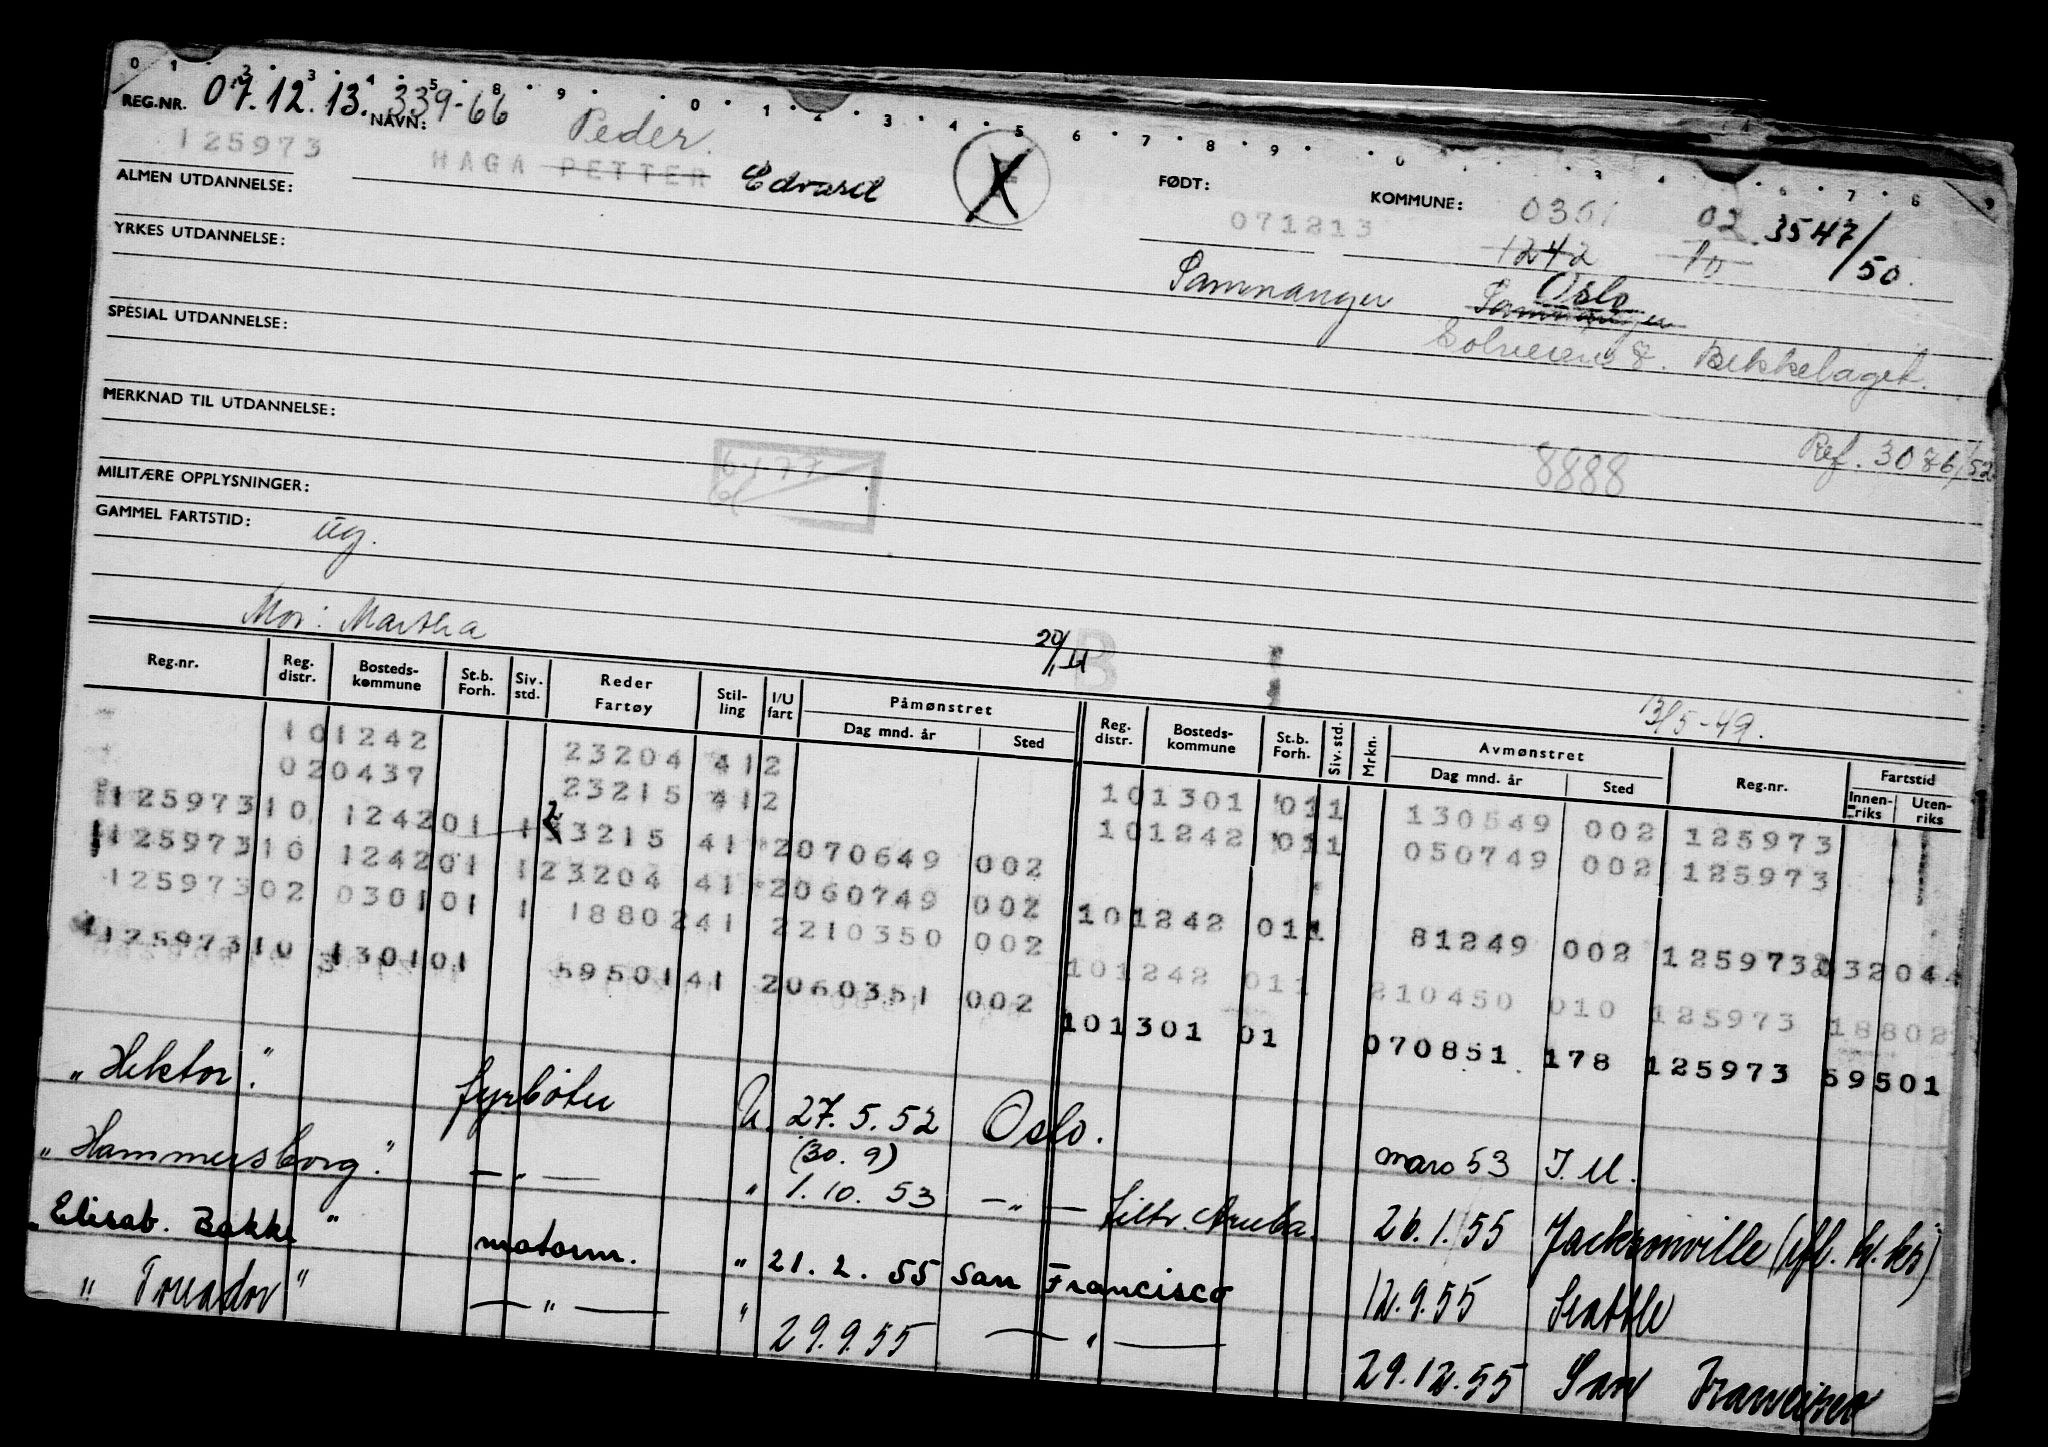 0 1 2 3 4 5 8 9 0 1 2 3 4 5 6 7 8 9 0 3 4 6 7 8 9
REG.NR. 07.12.13. 339-66 NAVN: Peder.
125973 HAGA PETTER Edvard X
ALMEN UTDANNELSE: FØDT: KOMMUNE: 0301 02 3547/50.
071213 1242 10
YRKES UTDANNELSE: Samnanger Oslo
Samnanger
SPESIAL UTDANNELSE: Solveien 8. Bekkelaget.
MERKNAD TIL UTDANNELSE: Ref. 3076/52
6-177 8888
MILITÆRE OPPLYSNINGER:
GAMMEL FARTSTID: ug.
Mor: Martha
20/11 B 13/5-49.
Reg.nr. Reg. distr. Bosteds-kommune St.b. Forh. Siv. std. Reder Fartøy Stil-ling I/U fart Påmønstret Dag mnd. år Sted Reg. distr. Bosteds-kommune St.b. Forh. Siv. std. Mrkn. Avmønstret Dag mnd. år Sted Reg.nr. Fartstid Innen-riks Uten-riks
101242 23204 412 101301 011 130549 002 125973
020437 23215 412 101242 011 050749 002 125973
125973 10 1242 01 1 23215 41 2 070649 002
125973 10 1242 01 1 23204 41 2 060749 002 101242 011 81249 002 125973 032044
125973 02 0301 01 1 18802 41 2 210350 002 101242 011 210450 010 125973 18802
125973 10 1301 01 59501 41 2 060351 002 101301 01 070851 178 125973 59501
„Hektor". fyrbøter U. 27.5.52 Oslo. mars 53 I.M.
(30.9)
„Hammersborg." — „ — „ 1.10.53 — „ — Aruba. 26.1.55 Jacksonville
„Elisab. Bakke" motorm. „ 21.2.55 San Francisco 12.9.55 Seattle
„Toreador" — „ — „ 29.9.55 — „ — 29.12.55 San Francisco